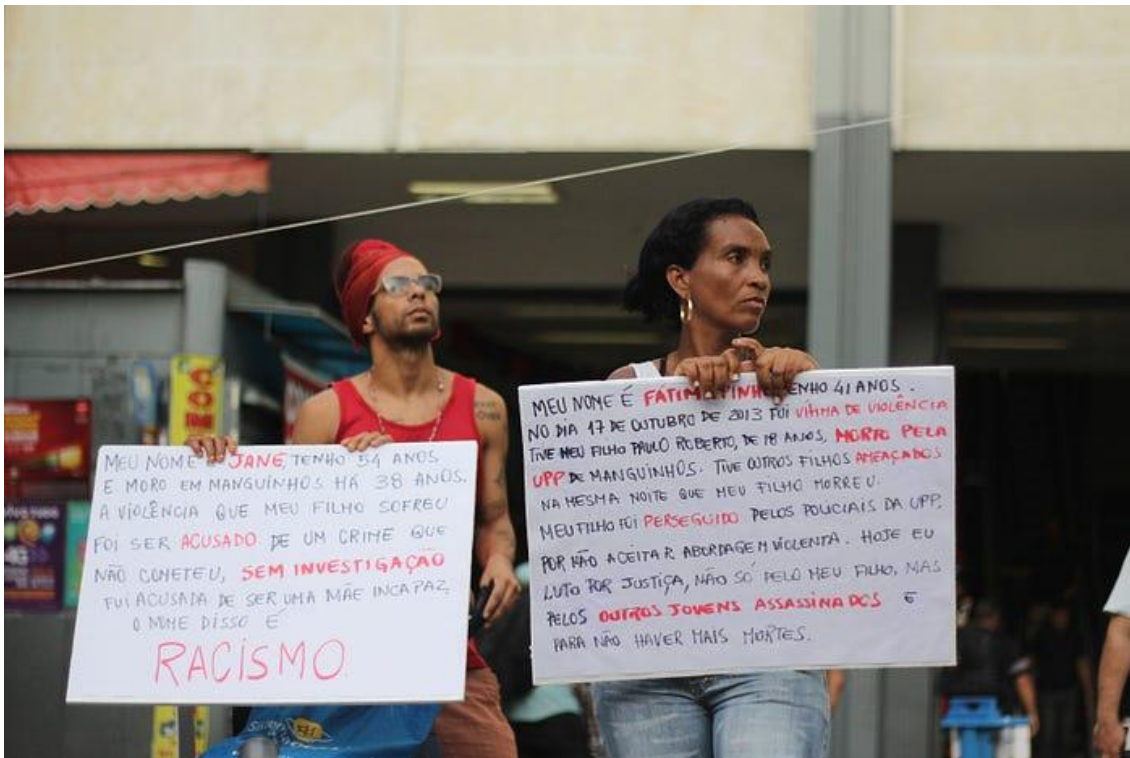 MEU NOME É JANE, TENHO 54 ANOS
E MORO EM MANGUINHOS HÁ 38 ANOS.
A VIOLÊNCIA QUE MEU FILHO SOFREU
FOI SER ACUSADO DE UM CRIME QUE
NÃO COMETEU, SEM INVESTIGAÇÃO
FUI ACUSADA DE SER UMA MÃE INCAPAZ
O NOME DISSO É
RACISMO
MEU NOME É FÁTIM PINH TENHO 41 ANOS.
NO DIA 17 DE OUTUBRO DE 2013 FUI VÍTIMA DE VIOLÊNCIA
TIVE MEU FILHO PAULO ROBERTO, DE 18 ANOS, MORTO PELA
UPP DE MANGUINHOS. TIVE OUTROS FILHOS AMEAÇADOS
NA MESMA NOITE QUE MEU FILHO MORREU.
MEU FILHO FOI PERSEGUIDO PELOS POLICIAIS DA UPP.
POR NÃO ACEITAR ABORDAGEM VIOLENTA. HOJE EU
LUTO POR JUSTIÇA, NÃO SÓ PELO MEU FILHO, MAS
PELOS OUTROS JOVENS ASSASSINADOS E
PARA NÃO HAVER MAIS MORTES.